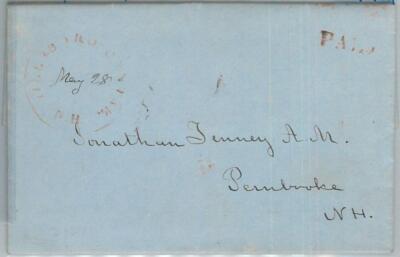 PAID
May 28
Jonathan Tenney A.M.
Pembroke
N.H.